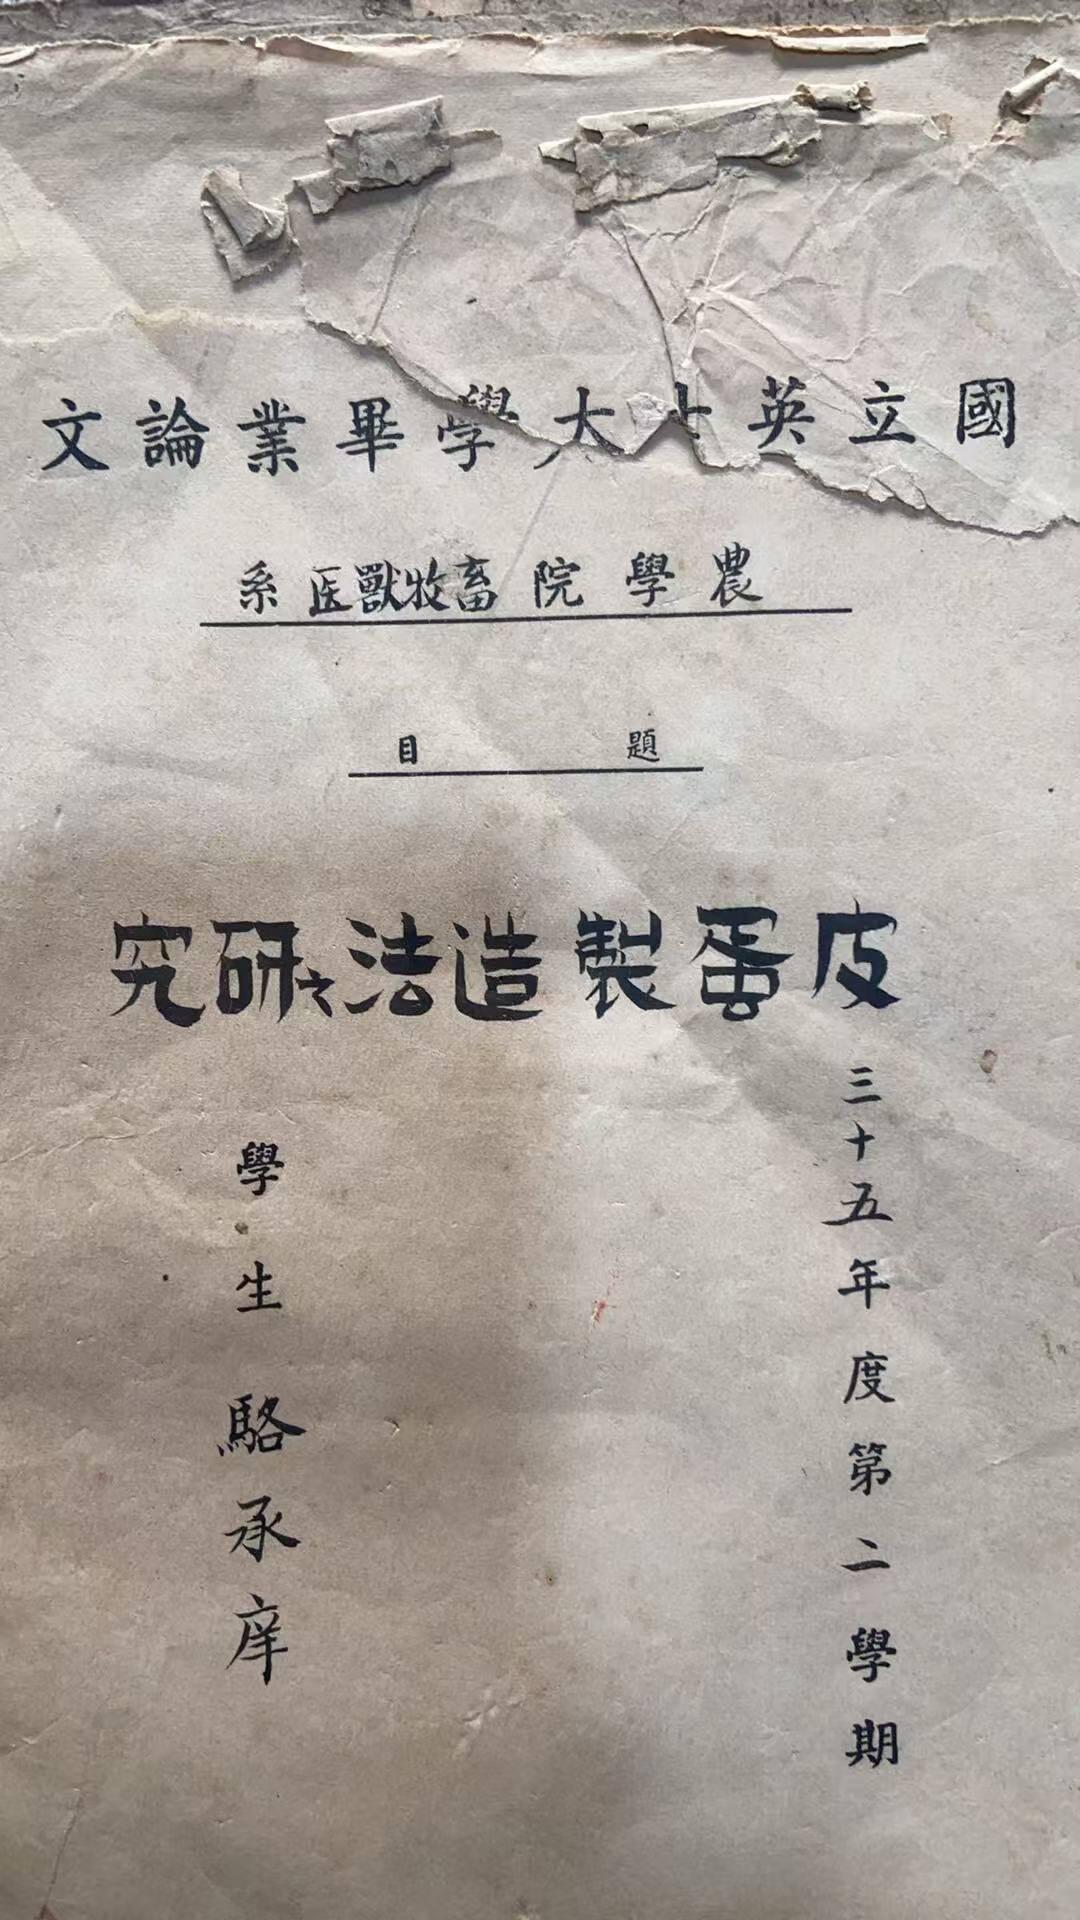 國立英士大學畢業論文
農學院畜牧獸医系
題目
皮蛋製造法之研究
三十五年度第二學期
學生 駱承庠